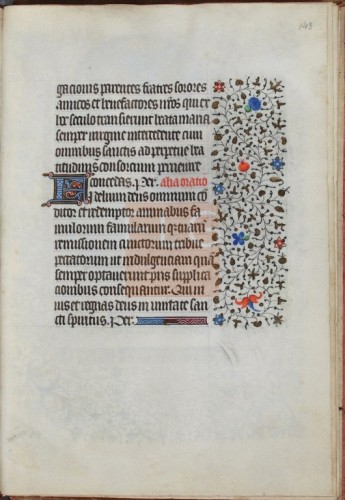 143
gacionis parentes fratres sorores
amicos et benefactores nr̃os qui ex
hoc seculo transierunt beata maria
semper virgine intercedente cum
omnibus sanctis ad perpetue bea
titudinis consorcium pervenire
concedas. Per. alia oratio
Fidelium deus omnium co
ditor et redemptor animabus fa
mulorum famularumq; tuarum
remissionem cunctorum tribue
peccatorum ut indulgenciam quã
semper optaverunt piis supplica
cionibus consequantur. Qui vi
vis et regnas deus in unitate san
cti spiritus. Per.